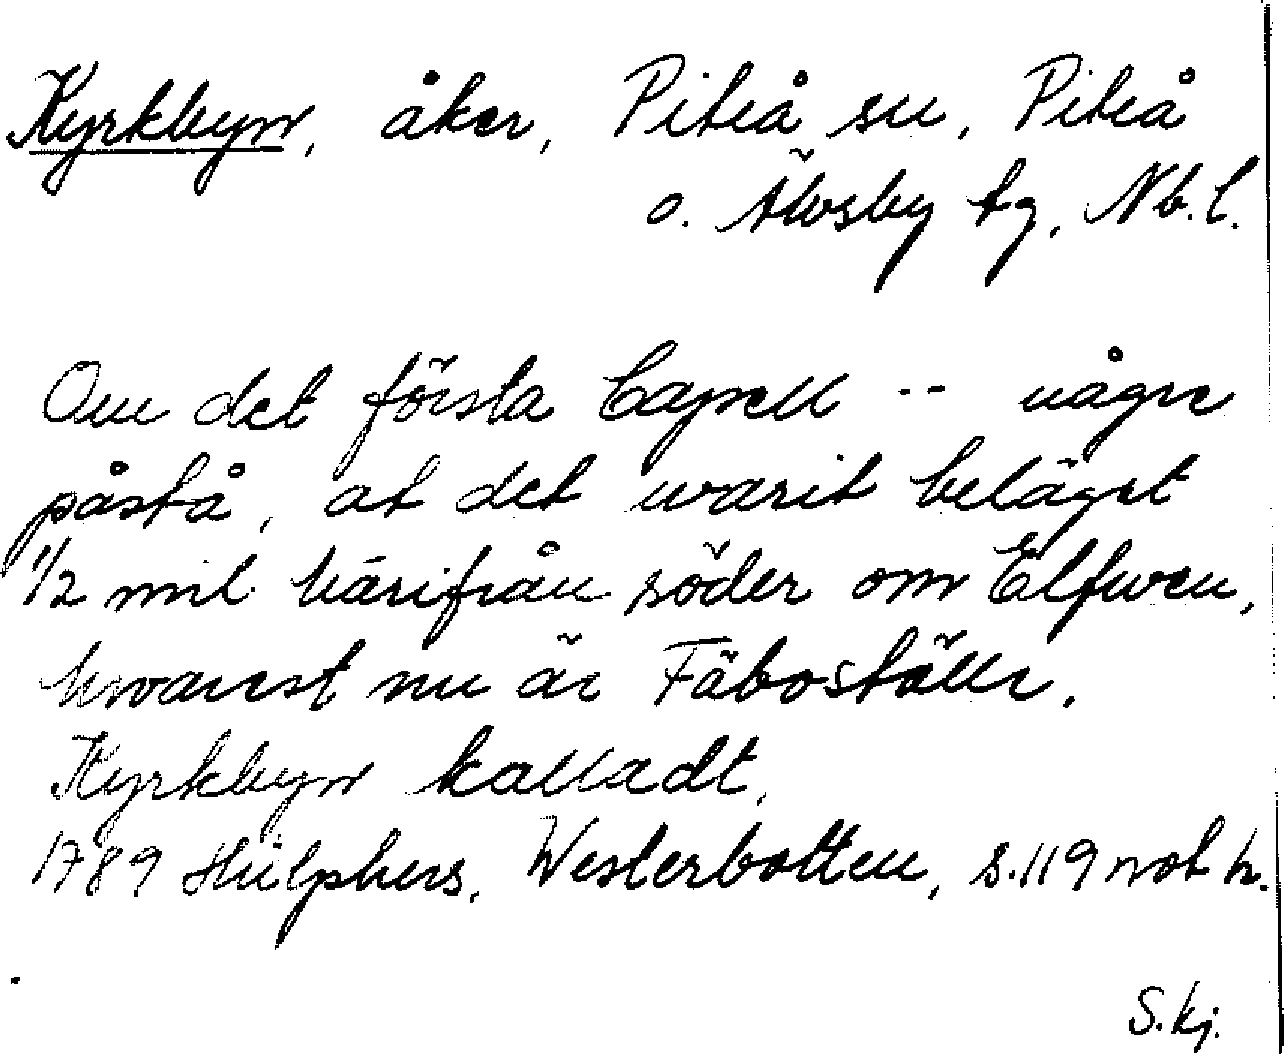 Kyrkbyn, åker, Piteå sn, Piteå
o. Älvsby tg, Nb.l.
Om det första Capell -- någre
påstå, at det warit beläget
1/2 mil härifrån söder om Elfwen,
hwarest nu är Fäboställe.
Kyrkbyn kalladt.
1789 Hülphers, Westerbotten, s.119 not h.
S.kj.